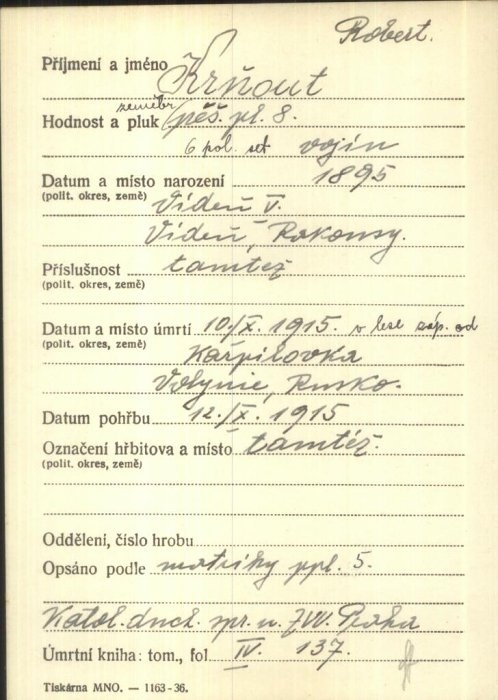 Robert.
Příjmení a jméno Krňout
zeměbr.
Hodnost a pluk pěš. pl. 8.
6 pol. set vojín
Datum a místo narození 1895
(polit. okres, země) Vídeň V.
Vídeň, Rakousy.
Příslušnost tamtéž
(polit. okres, země)
Datum a místo úmrtí 10./X. 1915. v lese záp. od
(polit. okres, země) Karpilovka
Volynie, Rusko.
Datum pohřbu 12./X. 1915
Označení hřbitova a místo tamtéž.
(polit. okres, země)
Oddělení, číslo hrobu
Opsáno podle matriky ppl. 5.
Katol. duch. spr. u ZVV. Praha
Úmrtní kniha: tom., fol. IV. 137.
Tiskárna MNO. — 1163-36.